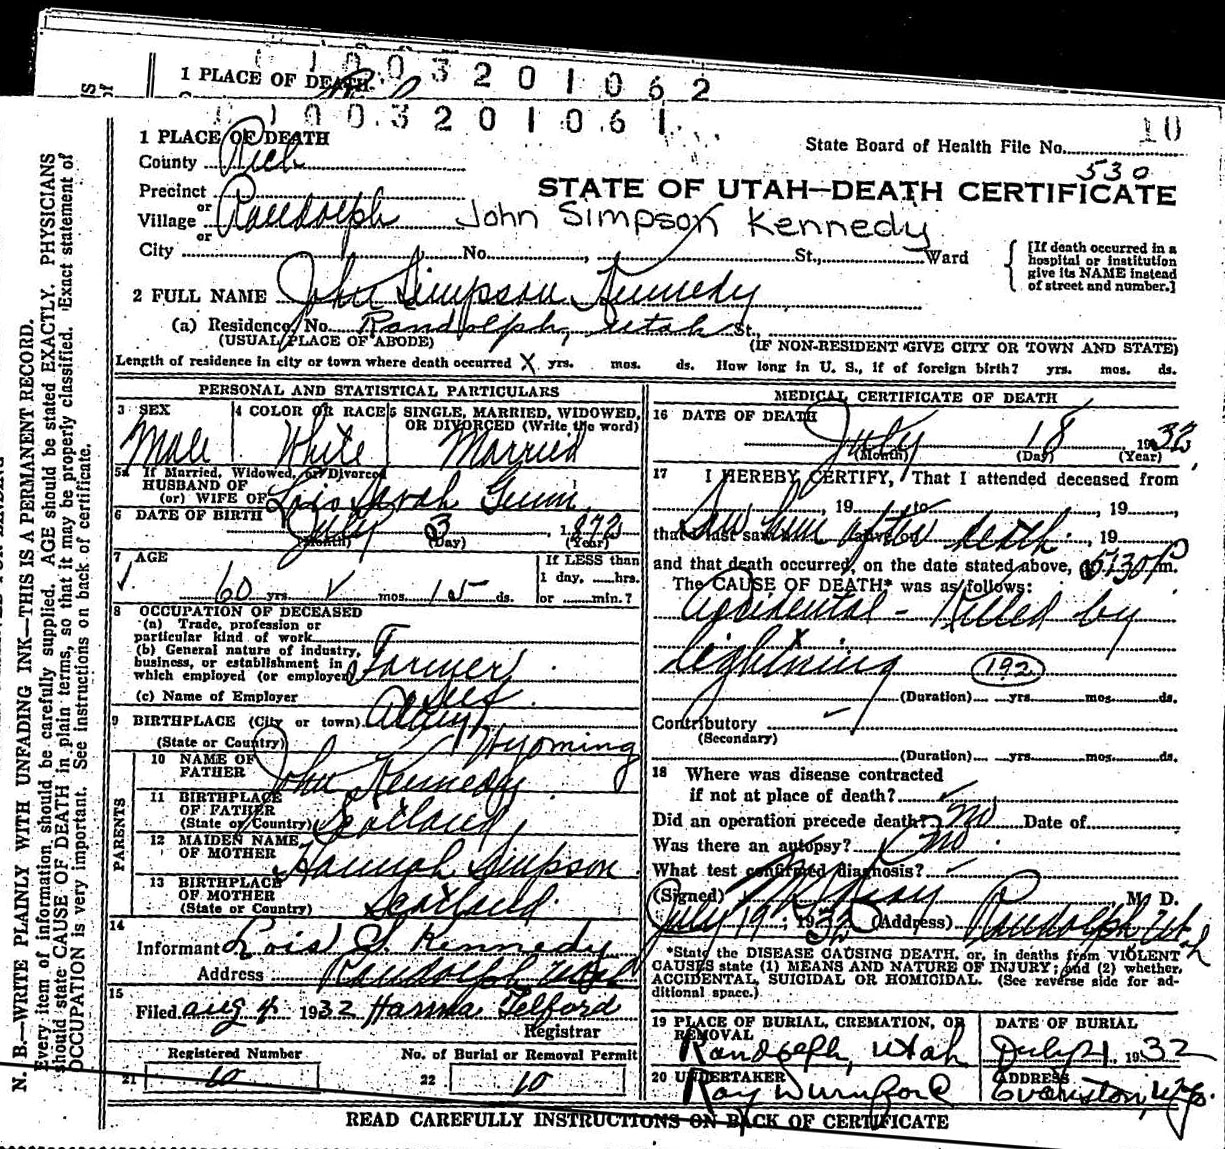 1 PLACE OF DEATH
1 1 0 0 3 2 0 1 0 6 2
1 1 0 0 3 2 0 1 0 6 1
10
1 PLACE OF DEATH
State Board of Health File No.
County Rich
530
Precinct
or
STATE OF UTAH—DEATH CERTIFICATE
Village Randolph
John Simpson Kennedy
or
City No. , St., Ward
[If death occurred in a
hospital or institution
give its NAME instead
of street and number.]
2 FULL NAME John Simpson Kennedy
(a) Residence, No. Randolph, Utah St.,
(USUAL PLACE OF ABODE) (IF NON-RESIDENT GIVE CITY OR TOWN AND STATE)
Length of residence in city or town where death occurred X yrs. mos. ds. How long in U. S., if of foreign birth? yrs. mos. ds.
PERSONAL AND STATISTICAL PARTICULARS
3 SEX
Male
4 COLOR OR RACE
White
5 SINGLE, MARRIED, WIDOWED,
OR DIVORCED (Write the word)
Married
5a If Married, Widowed, or Divorced
HUSBAND OF
(or) WIFE OF Lois Sarah Gunn
6 DATE OF BIRTH July 3, 1872
(Month) (Day) (Year)
7 AGE
60 yrs. mos. 15 ds.
If LESS than
1 day, hrs.
or min.?
8 OCCUPATION OF DECEASED
(a) Trade, profession or
particular kind of work
(b) General nature of industry,
business, or establishment in
which employed (or employer) Farmer
(c) Name of Employer Self
9 BIRTHPLACE (City or town)
(State or Country) Wyoming
PARENTS
10 NAME OF
FATHER John Kennedy
11 BIRTHPLACE
OF FATHER
(State or Country) Scotland
12 MAIDEN NAME
OF MOTHER Hannah Simpson
13 BIRTHPLACE
OF MOTHER
(State or Country) Scotland
14
Informant Lois S. Kennedy
Address Randolph Utah
15
Filed Aug 4 1932 Hanna Telford
Registrar
Registered Number
21 10
No. of Burial or Removal Permit
22 10
MEDICAL CERTIFICATE OF DEATH
16 DATE OF DEATH
July 18 1932
(Month) (Day) (Year)
17 I HEREBY CERTIFY, That I attended deceased from
, 19 to , 19 ,
that I last saw h alive on , 19
Saw him after death
and that death occurred, on the date stated above, 5:30 P m.
The CAUSE OF DEATH* was as follows:
Accidental - Killed by
lightning 192
(Duration) yrs. mos. ds.
Contributory
(Secondary)
(Duration) yrs. mos. ds.
18 Where was disease contracted
if not at place of death?
Did an operation precede death? no Date of
Was there an autopsy? no
What test confirmed diagnosis?
(Signed) M. D.
July 19, 1932 (Address) Randolph Utah
*State the DISEASE CAUSING DEATH, or, in deaths from VIOLENT
CAUSES state (1) MEANS AND NATURE OF INJURY; and (2) whether
ACCIDENTAL, SUICIDAL OR HOMICIDAL. (See reverse side for ad-
ditional space.)
19 PLACE OF BURIAL, CREMATION, OR
REMOVAL
Randolph, Utah
DATE OF BURIAL
July 21, 1932
20 UNDERTAKER
Ray Durnford
ADDRESS
Evanston, Wyo.
READ CAREFULLY INSTRUCTIONS ON BACK OF CERTIFICATE
N. B.—WRITE PLAINLY WITH UNFADING INK—THIS IS A PERMANENT RECORD.
Every item of information should be carefully supplied. AGE should be stated EXACTLY. PHYSICIANS
should state CAUSE OF DEATH in plain terms, so that it may be properly classified. Exact statement of
OCCUPATION is very important. See instructions on back of certificate.